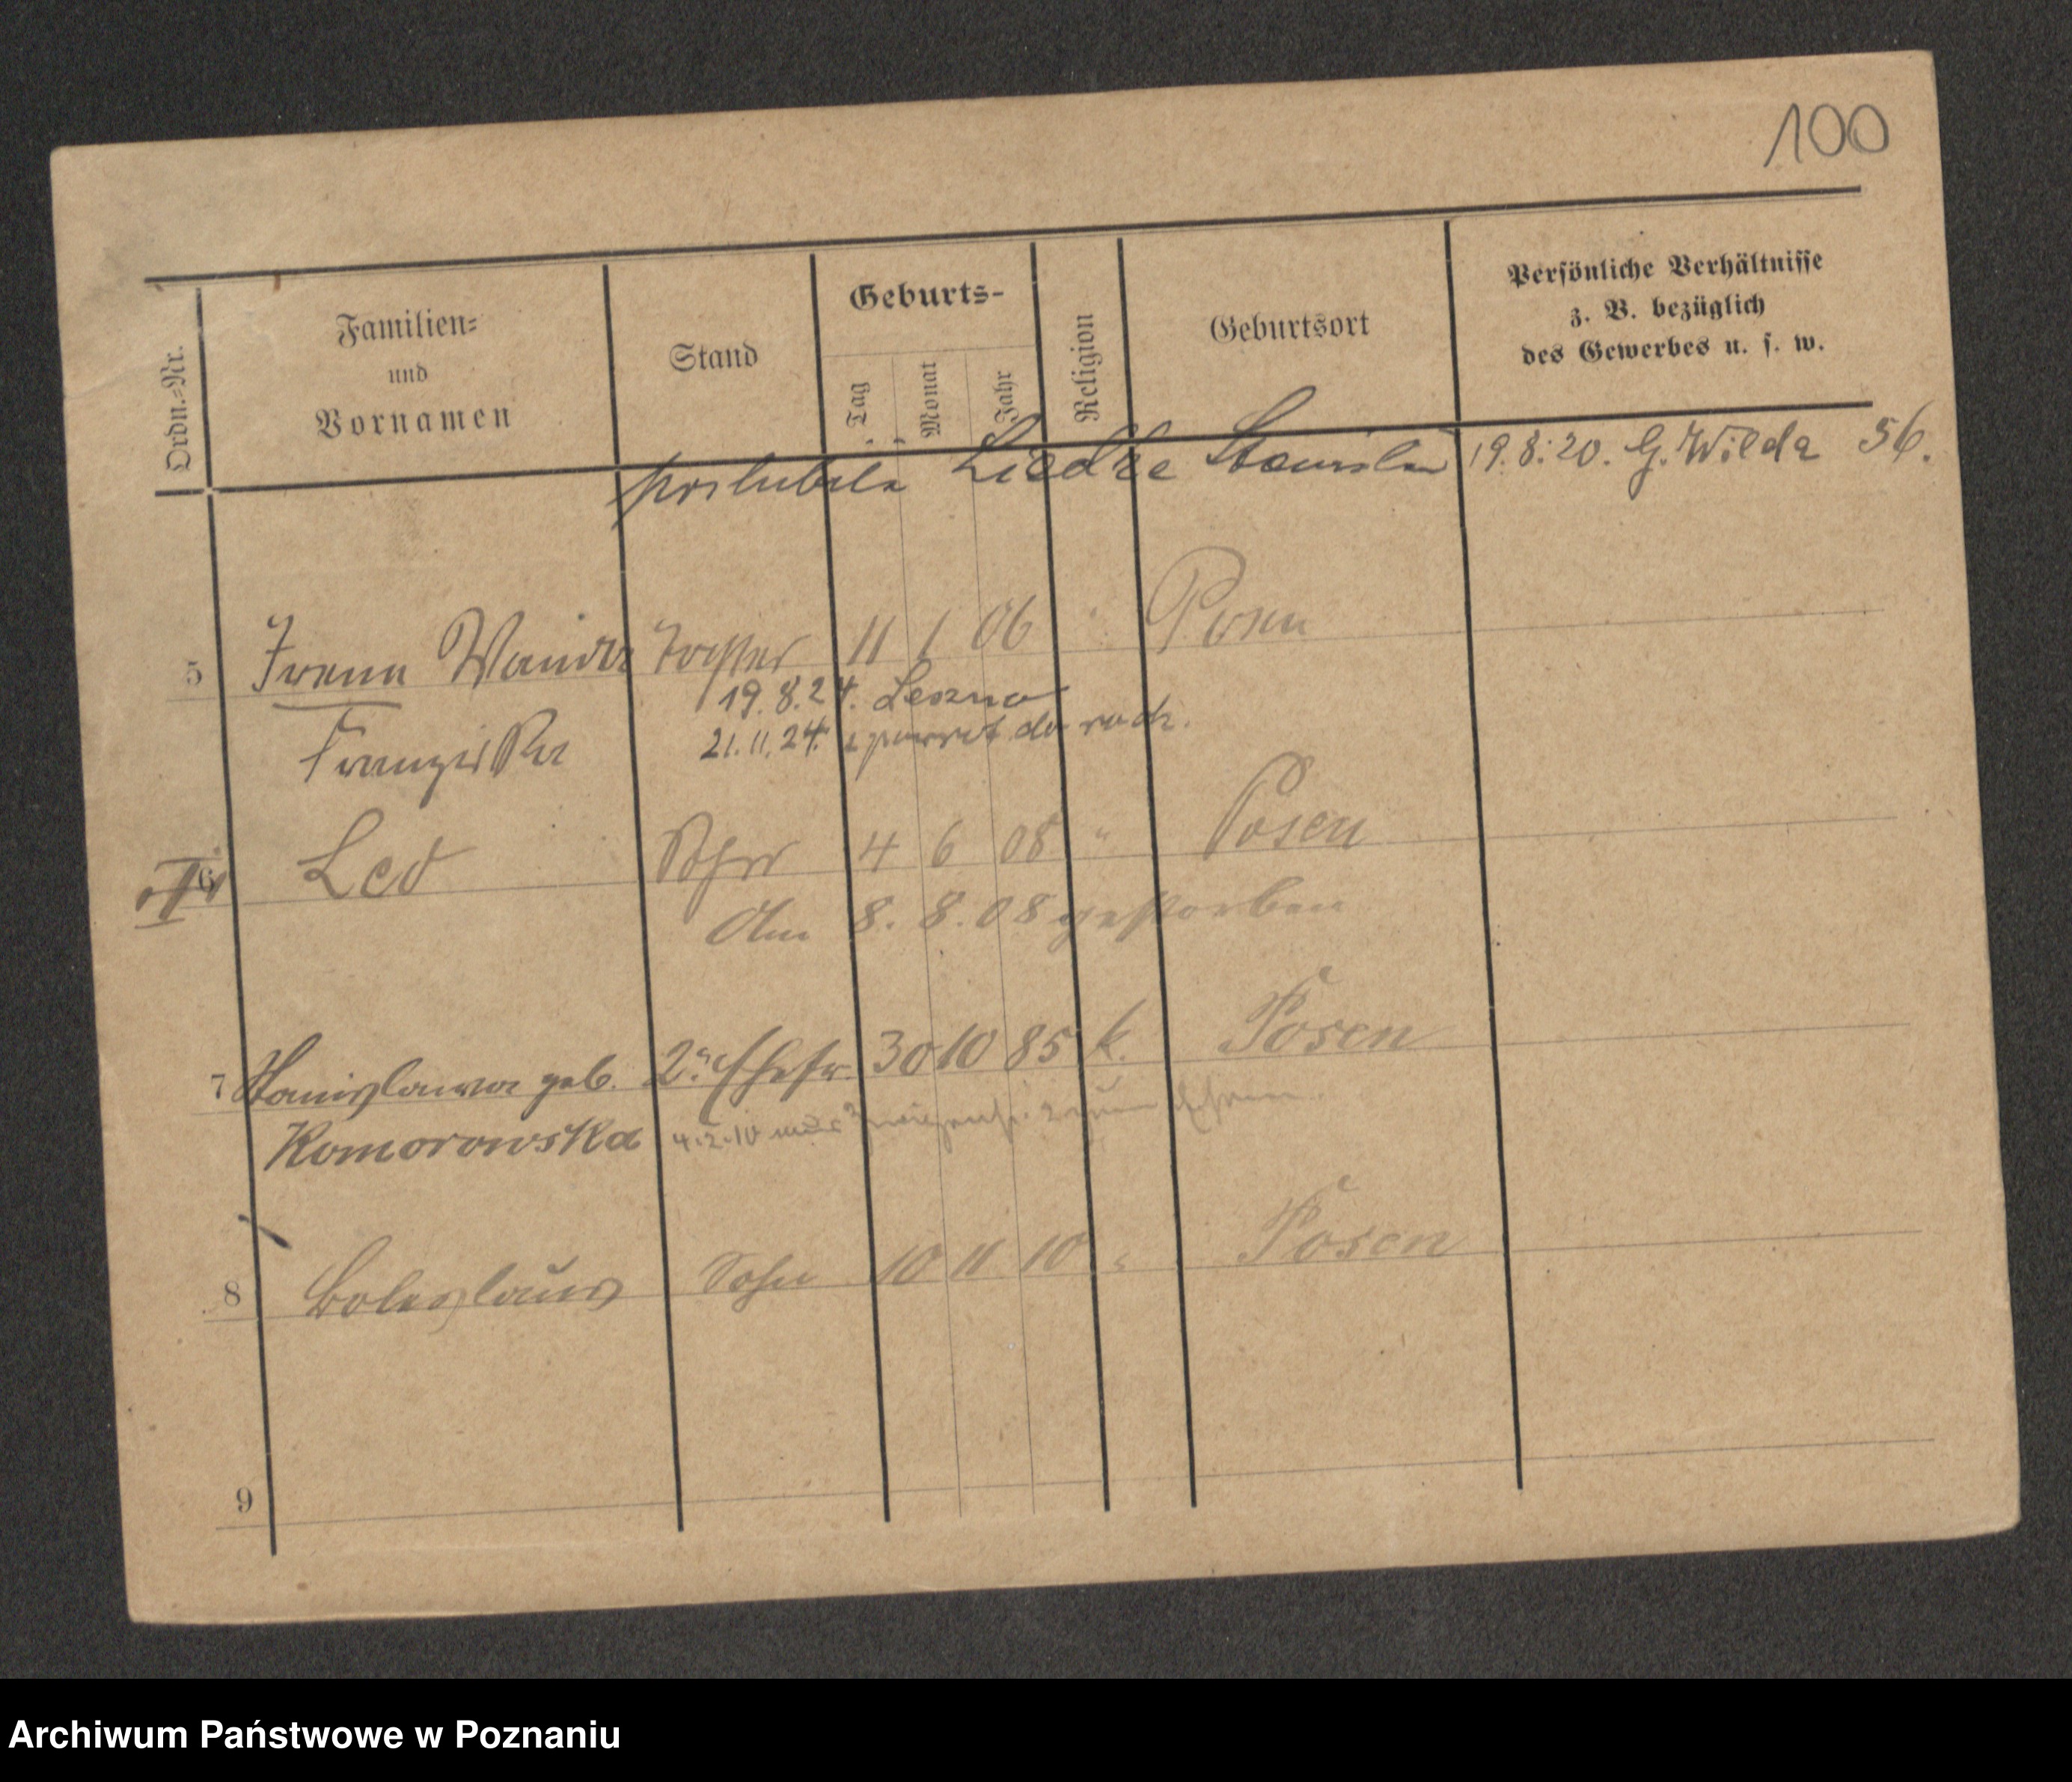 100
Ordn.=Nr.
Familien=
und
Vornamen
Stand
Geburts-
Tag
Monat
Jahr
Religion
Geburtsort
Persönliche Verhältnisse
z. B. bezüglich
des Gewerbes u. s. w.
poslubila Liedke Stanislau 19.8.20. G. Wilda 56.
5 Irena Wanda Tochter 11 1 06 Posen
19.8.24. Leszno
Franziska 21.11.24. z powrot. do rodz.
6 Leo Sohn 4 6 08 " Posen
Am 8. 8. 08 gestorben
7 Stanislawa geb. 2te Ehefr. 30 10 85 k. Posen
Komorowska 4.2.10
8 Boleslaus Sohn 10 11 10 " Posen
9
Archiwum Państwowe w Poznaniu